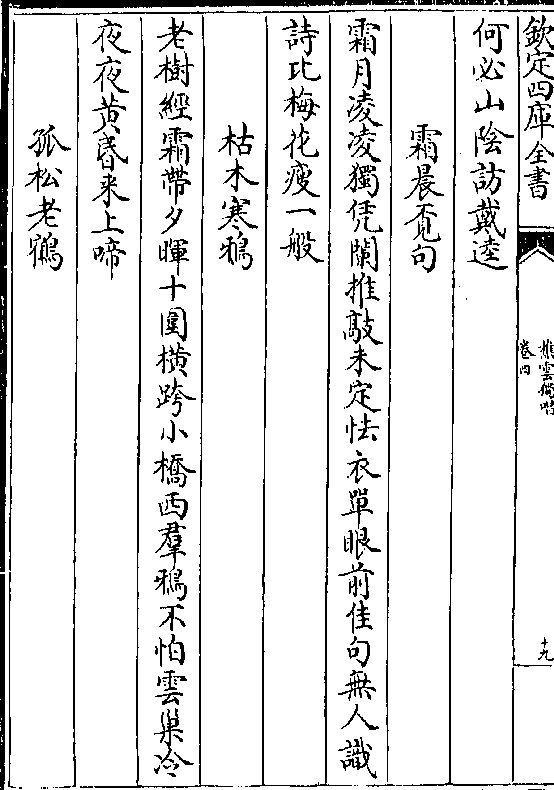 欽定四庫全書
樵雲獨唱
卷四
十九
何必山陰訪戴逵
霜晨覔句
霜月凌凌獨凭闌推敲未定怯衣單眼前佳句無人識
詩比梅花瘦一般
枯木寒鴉
老樹經霜帶夕暉十圍橫跨小橋西羣鴉不怕雲巢冷
夜夜黃昏来上啼
孤松老鶴